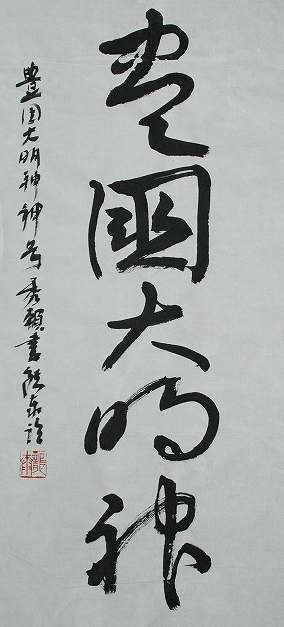 豊國大明神
豊国大明神神号秀頼書